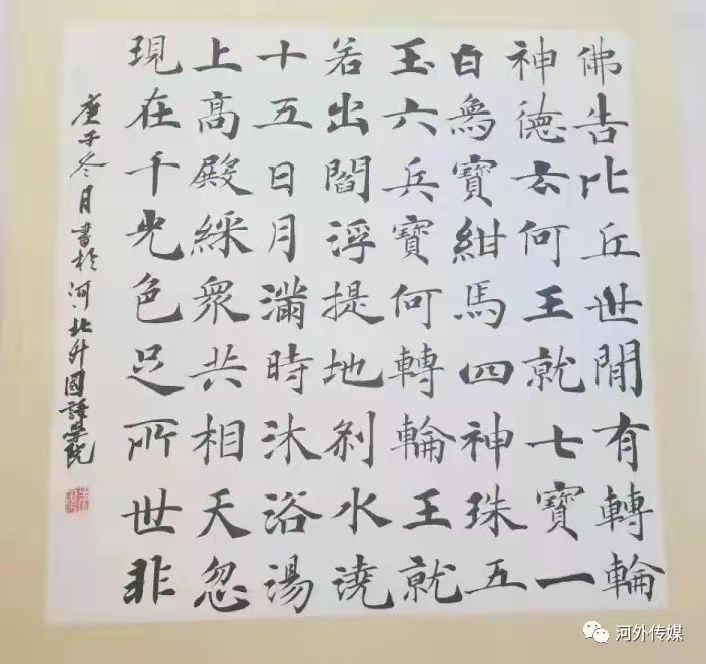 佛告比丘世間有轉輪
神德云何王就七寶一
白為寶紺馬四神珠五
玉六兵寶何轉輪王就
若出閻浮提地剎水遶
十五日月滿時沐浴湯
上高殿綵眾共相天忽
現在千光色足所世非
庚子冬月書於河北外國語學院
河外传媒